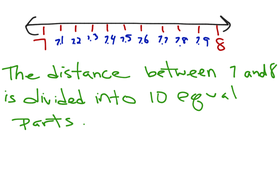 7 7.1 7.2 7.3 7.4 7.5 7.6 7.7 7.8 7.9 8
The distance between 7 and 8
is divided into 10 equal
parts.